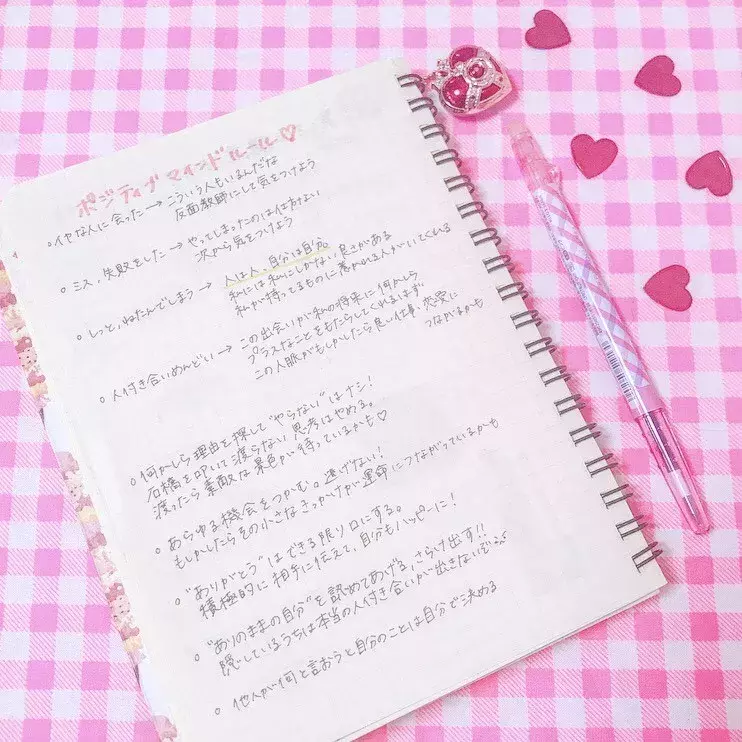 ポジティブマインドルール♡
○イヤな人に会った→こういう人もいるんだな
反面教師にして気をつけよう
○ミス、失敗をした→やってしまったのは仕方ない
次から気をつけよう
○しっと、ねたんでしまう→人は人、自分は自分
私には私にしかない良さがある
私が持ってるものに惹かれる人がいてくれる
○人付き合いめんどい→この出会いが私の将来に何かしら
プラスなことをもたらしてくれるはず
この人脈がもしかしたら良い仕事、恋愛に
つながるかも
○何かしら理由を探して"やらない"はナシ!
石橋を叩いて渡らない思考はやめる。
渡ったら素敵な景色が待っているかも♡
○あらゆる機会をつかむ。逃げない!
もしかしたらその小さなきっかけが運命につながっているかも
○"ありがとう"はできる限り口にする。
積極的に相手に伝えて、自分もハッピーに!
○"ありのままの自分"を認めてあげる、さらけ出す!!
隠しているうちは本当の人付き合いが出きないぞ
○他人が何と言おうと自分のことは自分で決める